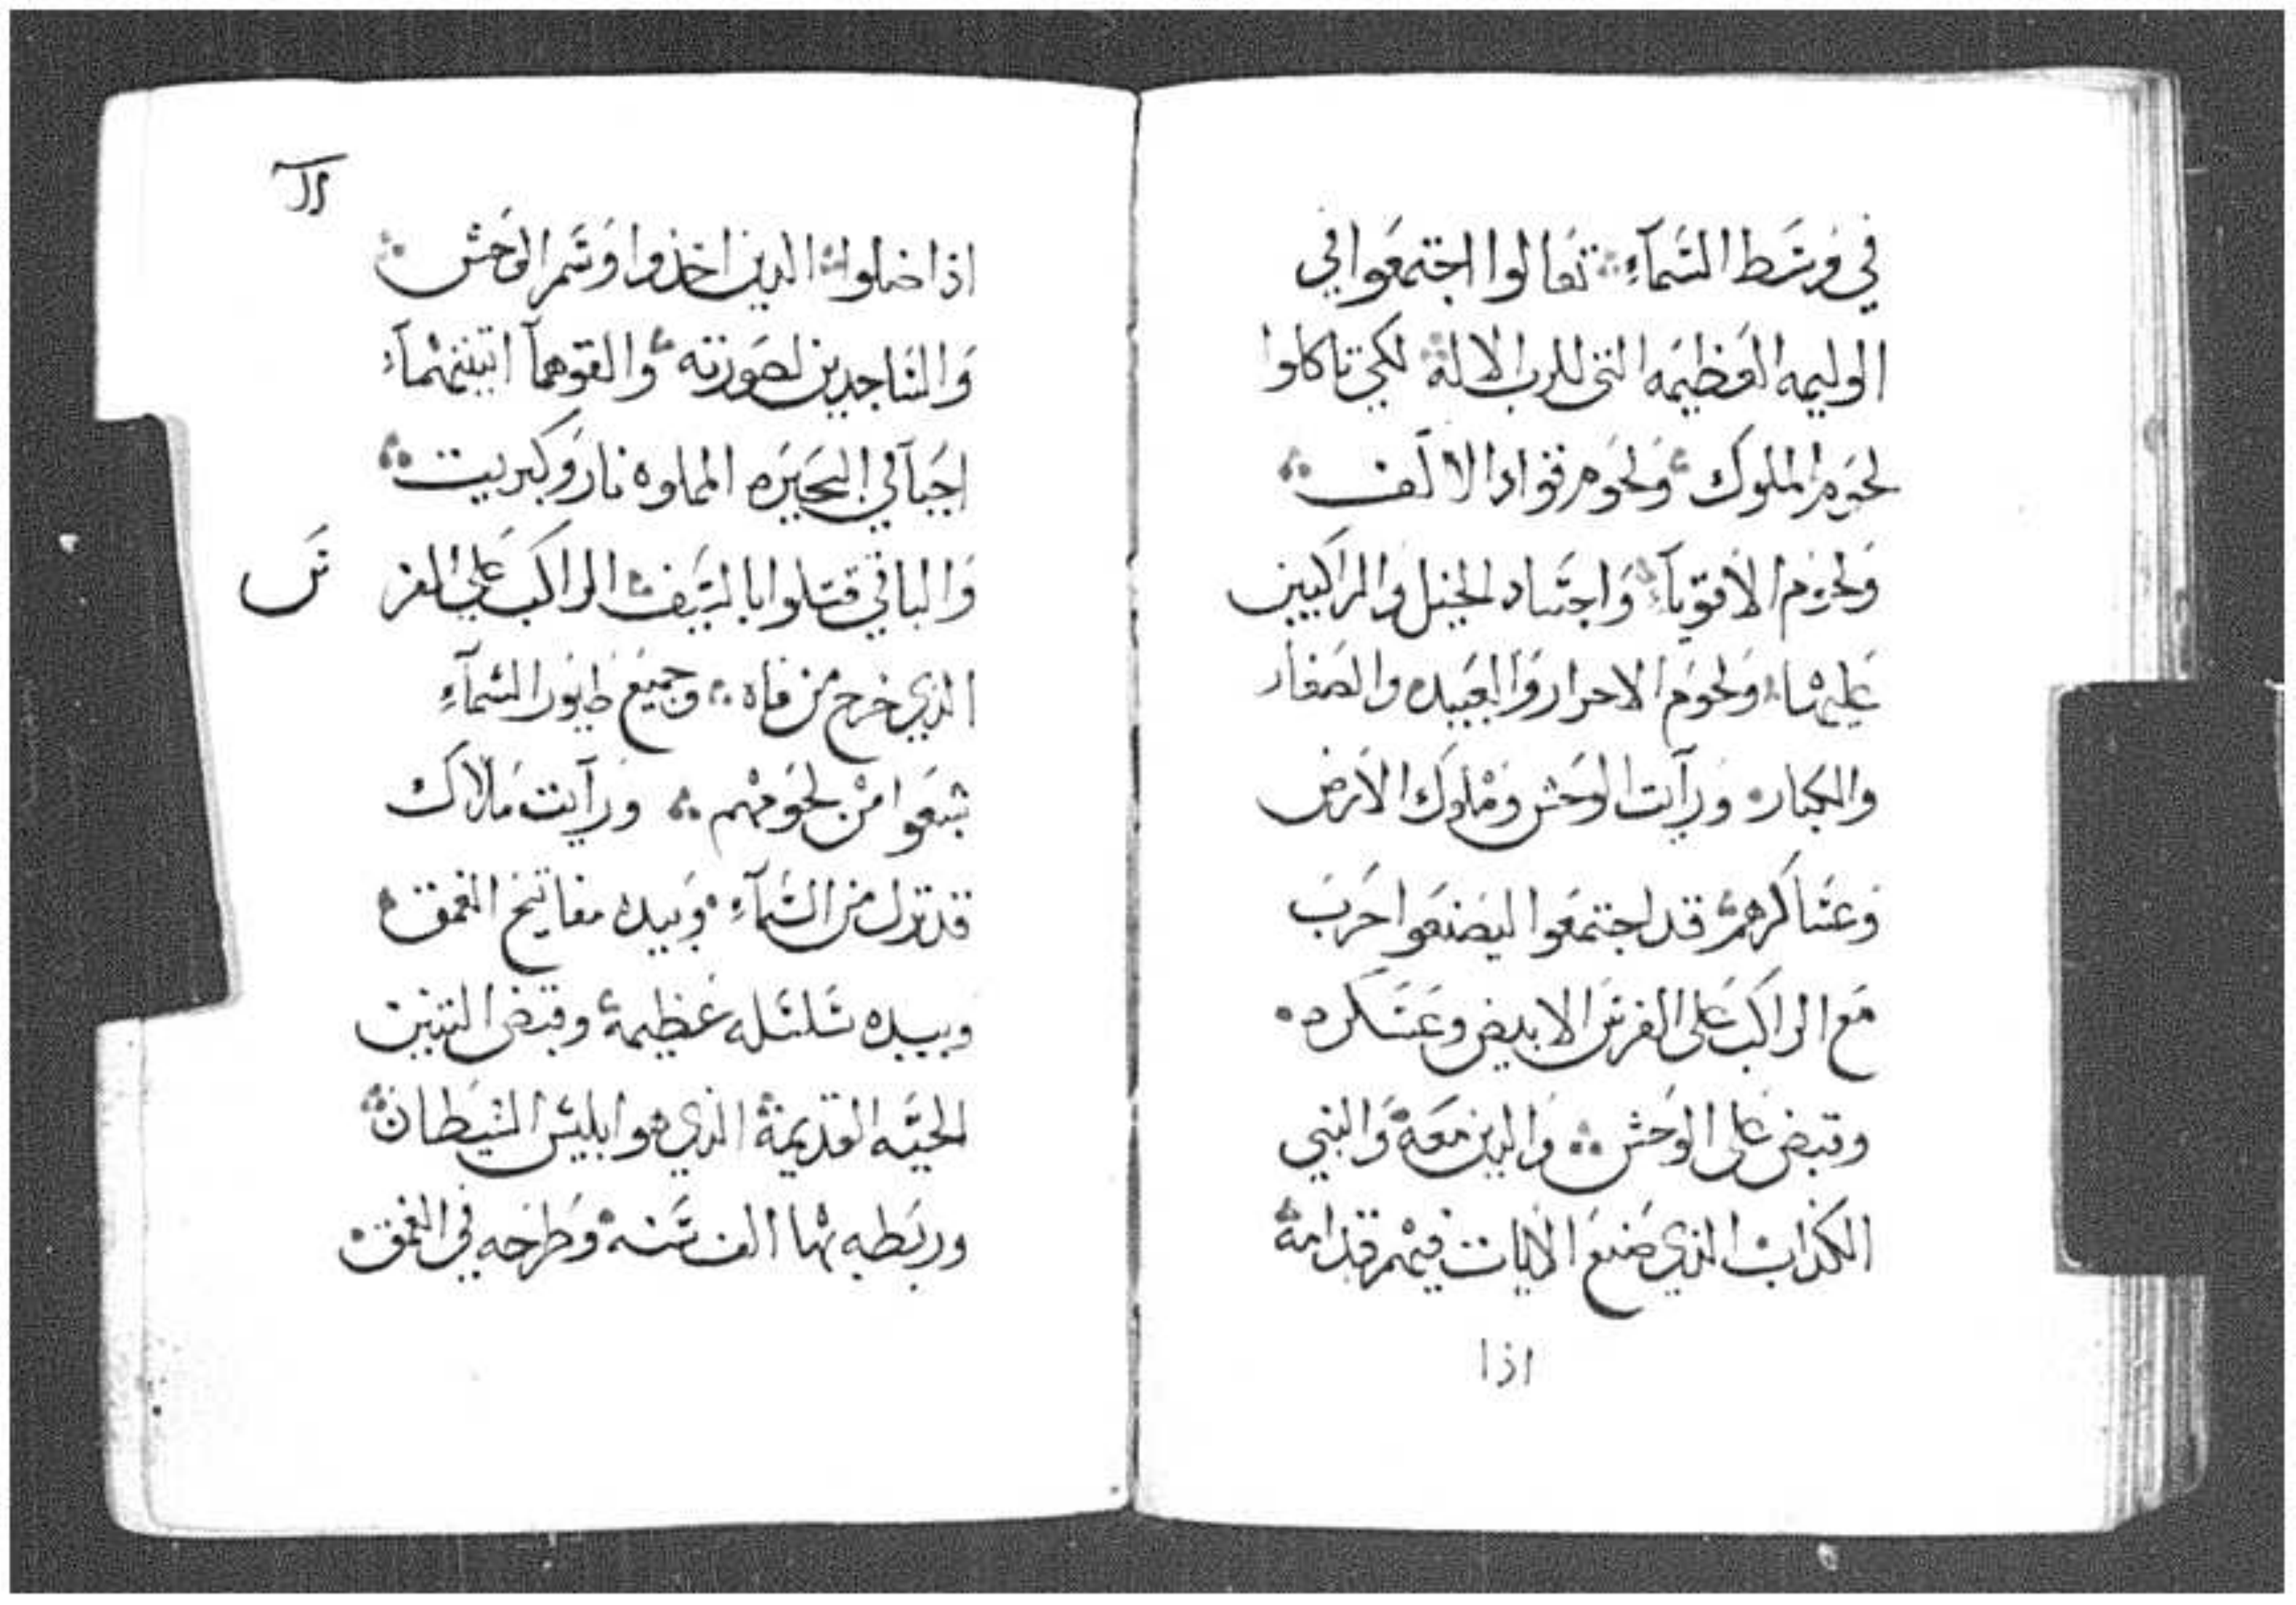 في وسط السمآء تعالوا اجتمعوا في
الوليمه العظيمه التي للرب الاله لكي تاكلوا
لحوم الملوك ولحوم قواد الالف
ولحوم الاقويآء واجساد الخيل والراكبين
عليها ولحوم الاحرار والعبيد والصغار
والكبار ورآيت الوحش وملوك الارض
وعساكرهم قد اجتمعوا ليصنعوا حرب
مع الراكب على الفرس الابيض وعسكره
وقبض على الوحش والدين معه والنبي
الكذاب الذي صنع الايات فيهم قدامه
اذا
اذا ضلوا الدين اخذوا وسم الوحش
والساجدين لصورته والقوهمآ اتينيهمآ
احيآ في البحيره المملوه نار وكبريت
والباقي قتلوا بالسيف الراكب على الفر س
الذي خرج من فاه وجميع طيور السمآء
شبعوا من لحومهم ورآيت ملاك
قد نزل من السمآء وبيده مفاتيح الغمق
وبيده سلسله عظيمة وقبض التنين
الحيه القديمة الذي هو ابليس الشيطان
وربطه بها الف سنه وطرحه في الغمق